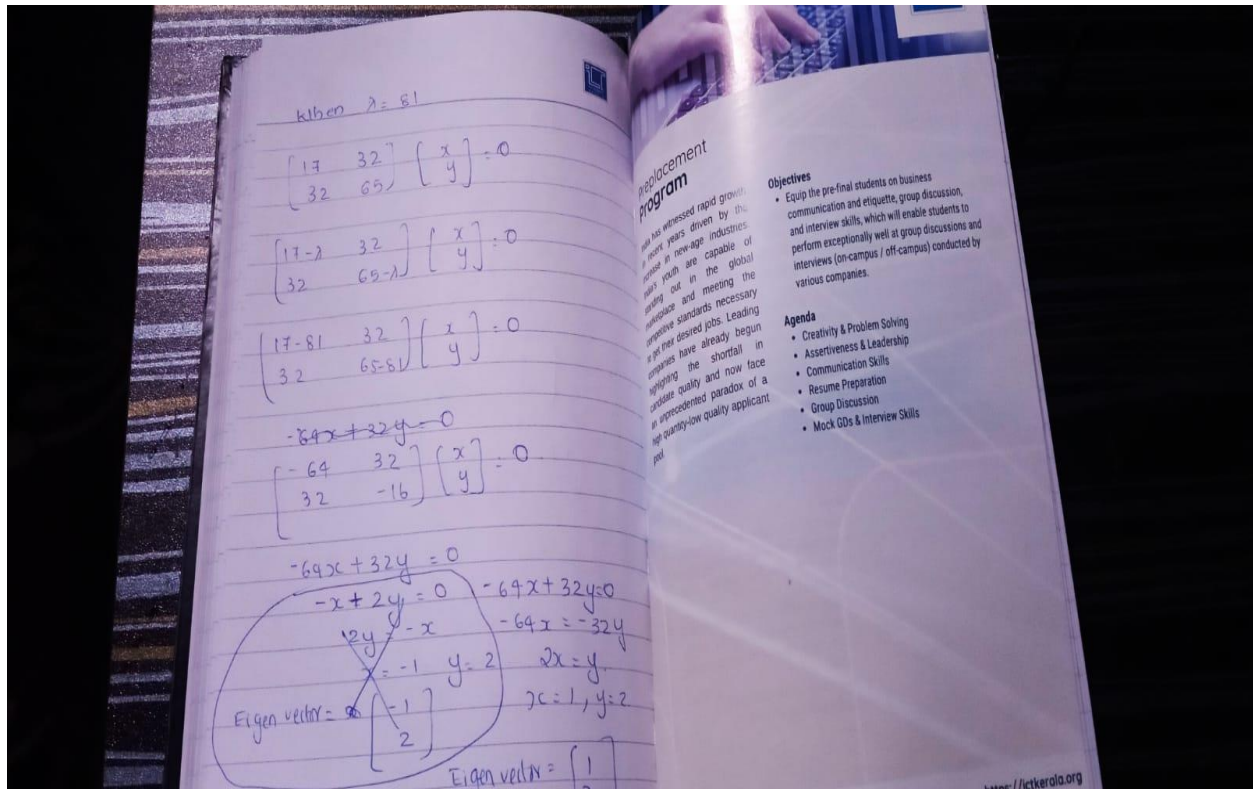 When λ = 81
[17 32
32 65] [x
y] = 0
[17-λ 32
32 65-λ] [x
y] = 0
[17-81 32
32 65-81] [x
y] = 0
-64x+32y=0
[-64 32
32 -16] [x
y] = 0
-64x+32y = 0
-x+2y = 0
2y = -x
= -1 y = 2
Eigen vector = [-1
2]
-64x+32y=0
-64x = -32y
2x = y.
x = 1, y = 2
Eigen vector = [1
preplacement
Program
India has witnessed rapid growth
in recent years driven by the
increase in new-age industries.
India's youth are capable of
standing out in the global
marketplace and meeting the
competitive standards necessary
to get their desired jobs. Leading
companies have already begun
highlighting the shortfall in
candidate quality and now face
an unprecedented paradox of a
high quantity-low quality applicant
pool.
Objectives
• Equip the pre-final students on business
communication and etiquette, group discussion,
and interview skills, which will enable students to
perform exceptionally well at group discussions and
interviews (on-campus / off-campus) conducted by
various companies.
Agenda
• Creativity & Problem Solving
• Assertiveness & Leadership
• Communication Skills
• Resume Preparation
• Group Discussion
• Mock GDs & Interview Skills
https://ictkerala.org